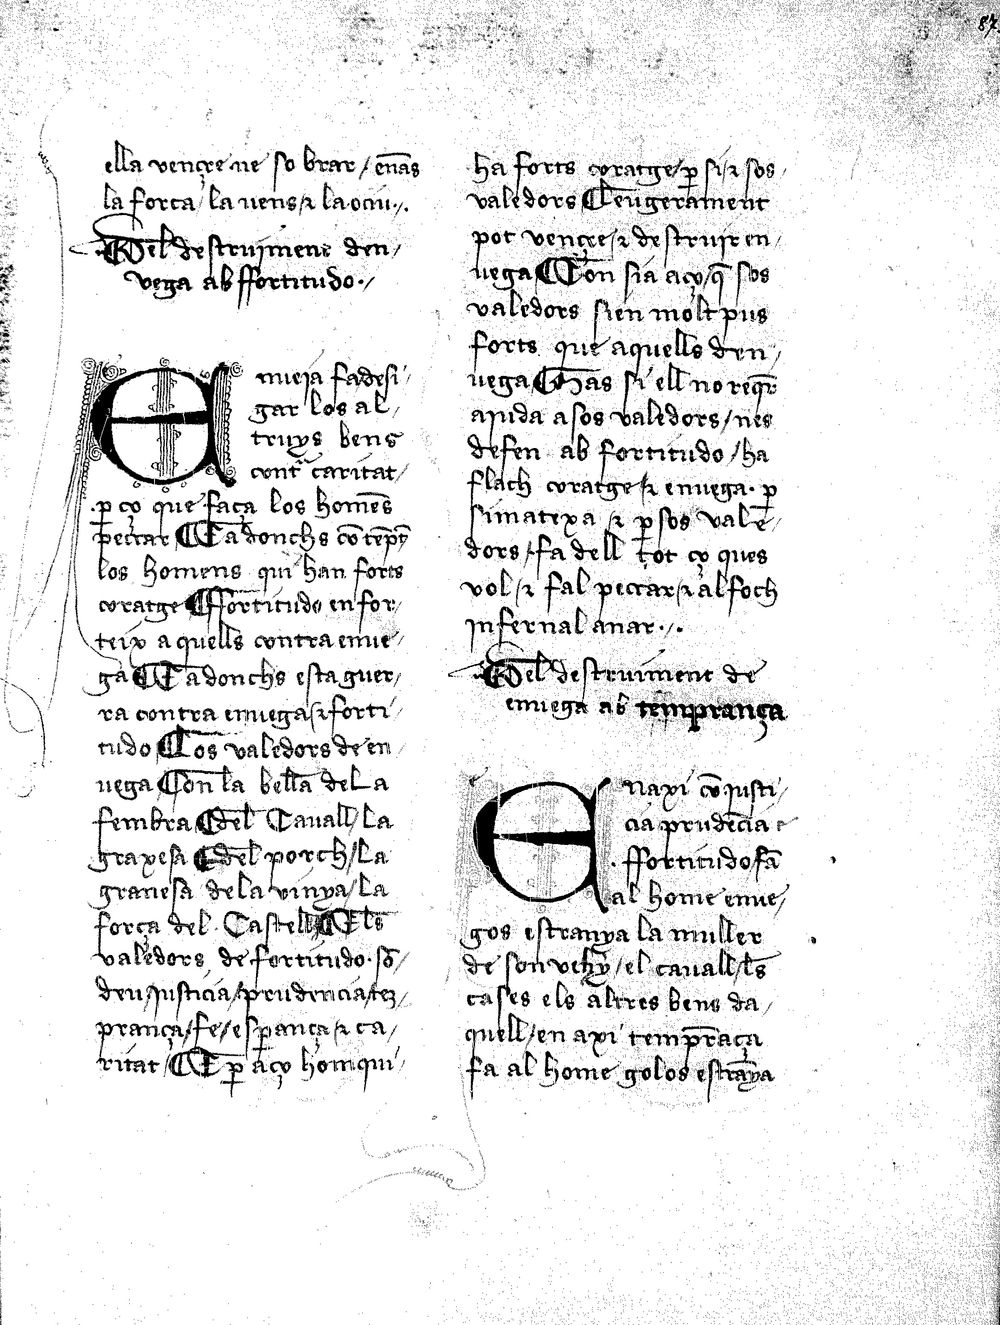 87
ella vençre ne so brar / enãs
la força / la uens ⁊ la ociu.
Del destruiment den /
vega ab ffortitudo.
Enueja fa desi /
gar los al /
truys bens
cont̃ caritat /
p̱ ço que faça los homẽs
peccar E adonchs cõ tẽpt̃
los homens qui han forts
coratge Ffortitudo enfor /
teix aquells contra enue /
ga E adonchs esta guer /
ra contra enuega ⁊ forti /
tudo Los valedors de en
uega Son la bellã de La
fembra Del Cauall / La
graxesa del porch / La
granesa de la vinya / La
força del Castell Els
valedors de fortitudo. sõ /
deu / justicia / prudencia / tẽ /
prança / fe / esp̱ança ⁊ ca /
ritat E p̱ aço hom qui /
ha forts coratge / p̱ si ⁊ sos /
valedors Leugerament
pot vençre ⁊ destruir en /
uega Con sia aço / q̃ sos
valedors sien molt pus
forts que aquells den /
uega Mas si ell no reqr̃
ajuda a sos valedors / nes
defen ab fortitudo / ha
flach coratge ⁊ enuega. p̱
si matexa ⁊ p̱ sos valẽ /
dors / fa dell tot ço ques
vol / ⁊ fal peccar ⁊ al foch
infernal anar.
Del destruiment de
enuega ab temprança
Enaxi cõ justi /
cia prudẽcia e
ffortitudo fã
al home enue /
gos estranya la muller
de son vehỹ / el cauall / ls̃
cases els altres bens da /
quell / en axi temp̱raça
fa al home golos estrãya